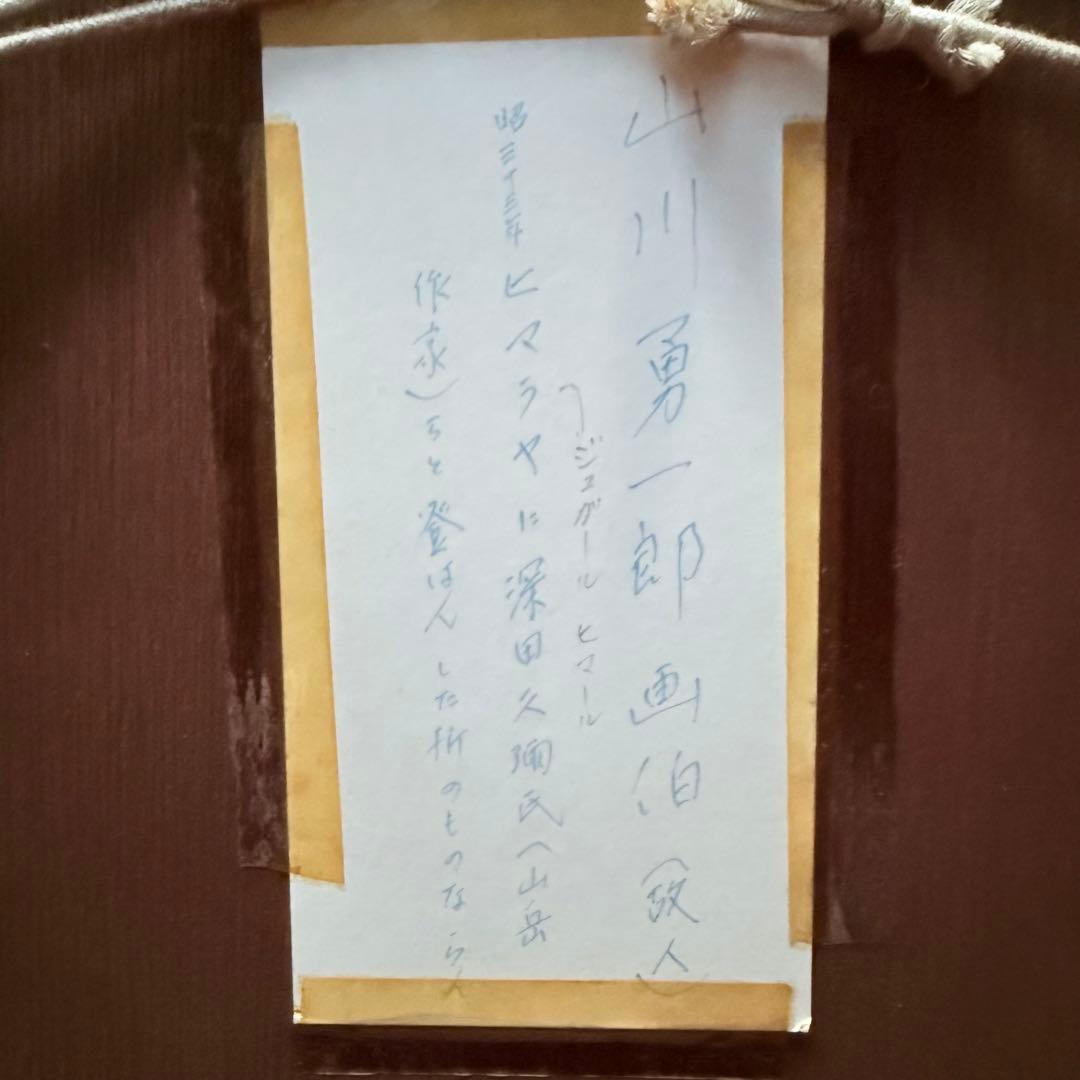 山川勇一郎画伯（故人）
「ジュガール ヒマール
昭三十三年 ヒマラヤに深田久弥氏（山岳
作家）らと登はんした折のものならん